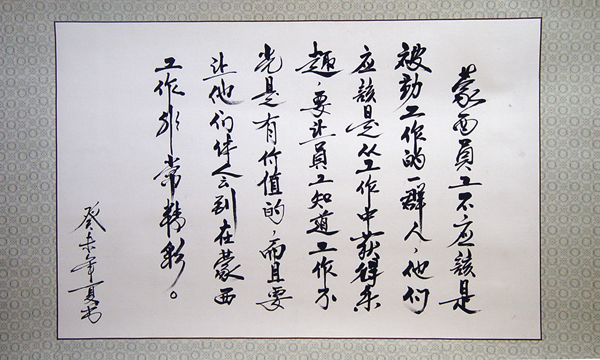 蒙西員工不应該是
被动工作的一群人，他们
应該是从工作中获得乐
趣，要让員工知道工作不
光是有价值的，而且要
让他们体会到在蒙西
工作非常精彩。
癸未年夏书